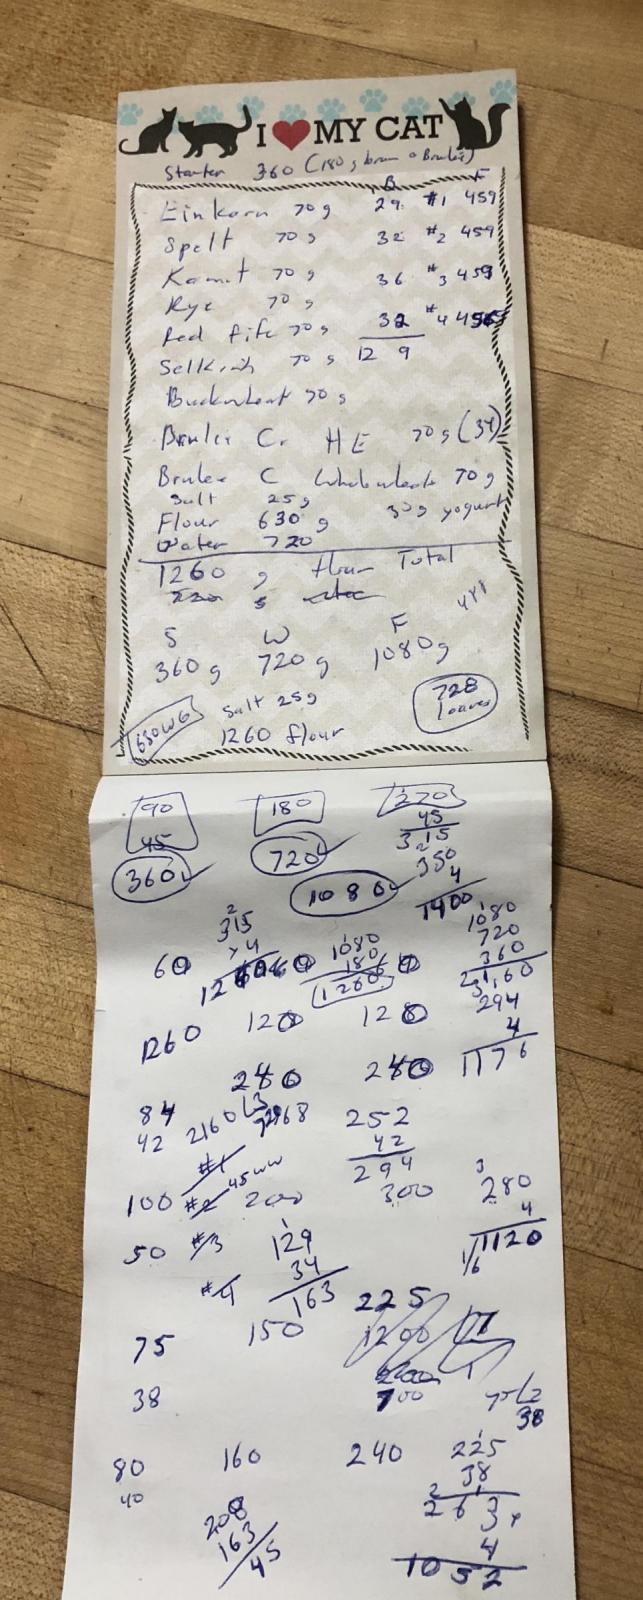 I ❤ MY CAT
Starter 360 (180 g bran
B F
Einkorn 70 g 29 #1 459
Spelt 70 g 32 #2 459
Kamut 70 g 36 #3 459
Rye 70 g
Red fife 70 g 32 #4 456
Selkirk 70 g 12 9
Buckwheat 70 g
Brulee C. HE 70 g (34)
Brulee C Wholewheat 70 g
Salt 25 g
Flour 630 g 30g yogurt
Water 720
1260 g flour Total
S W F
360 g 720 g 1080 g
Salt 25 g 728
630WG 1260 flour loaves
90 180 270
45 45
315
360 720 350
1080 4
1400
315 1080 1080
60 x4 180 720
1260 1260 360
2160
1260 120 120 294
4
240 240 1176
84 252
42 2160 42
#1 294
45 WW
100 #2 200 300 280
4
50 #3 129 1120
34
#4 163
225
75 150 1200
38 700 38
80 160 240 225
40 38
208 263
163 4
45 1052